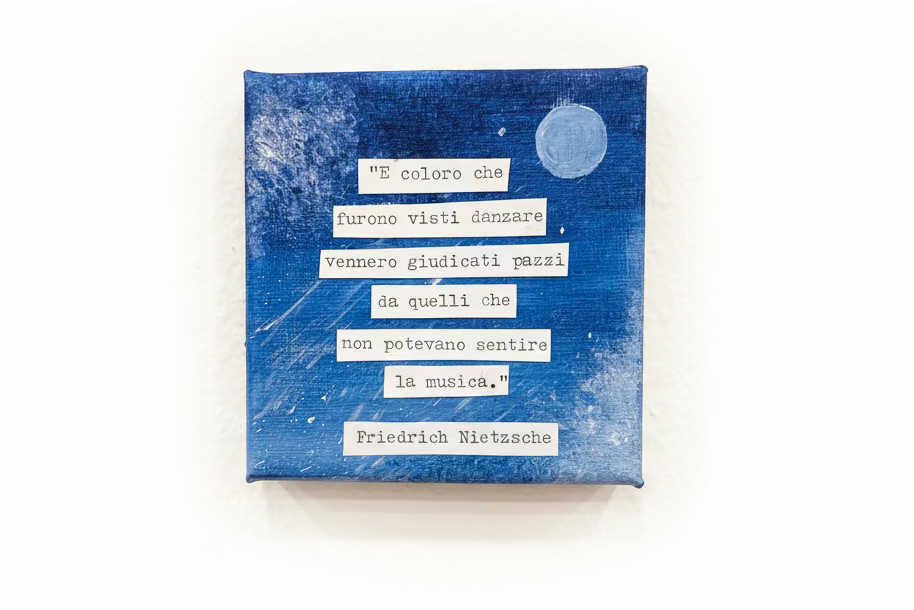 "E coloro che
furono visti danzare
vennero giudicati pazzi
da quelli che
non potevano sentire
la musica."
Friedrich Nietzsche